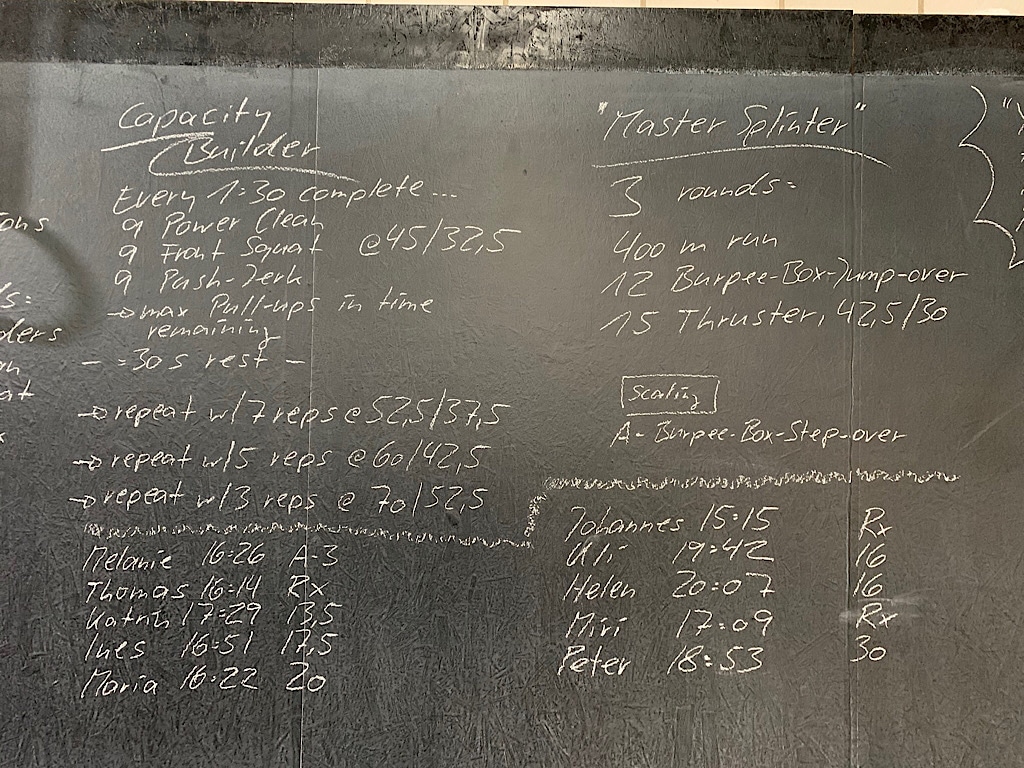 Capacity
Builder
Every 1:30 complete...
9 Power Clean
9 Front Squat @45/32,5
9 Push-Jerk
→max Pull-ups in time
remaining
- =30s rest -
→repeat w/7 reps @52,5/37,5
→repeat w/5 reps @60/42,5
→repeat w/3 reps @ 70/52,5
Melanie 16:26 A-3
Thomas 16:14 Rx
Katrin 17:29 13,5
Ines 16:51 17,5
Maria 16:22 20
"Master Splinter"
3 rounds:
400 m run
12 Burpee-Box-Jump-over
15 Thruster, 42,5/30
Scaling
A- Burpee-Box-Step-over
Johannes 15:15 Rx
Uli 19:42 16
Helen 20:07 16
Miri 17:09 Rx
Peter 18:53 30